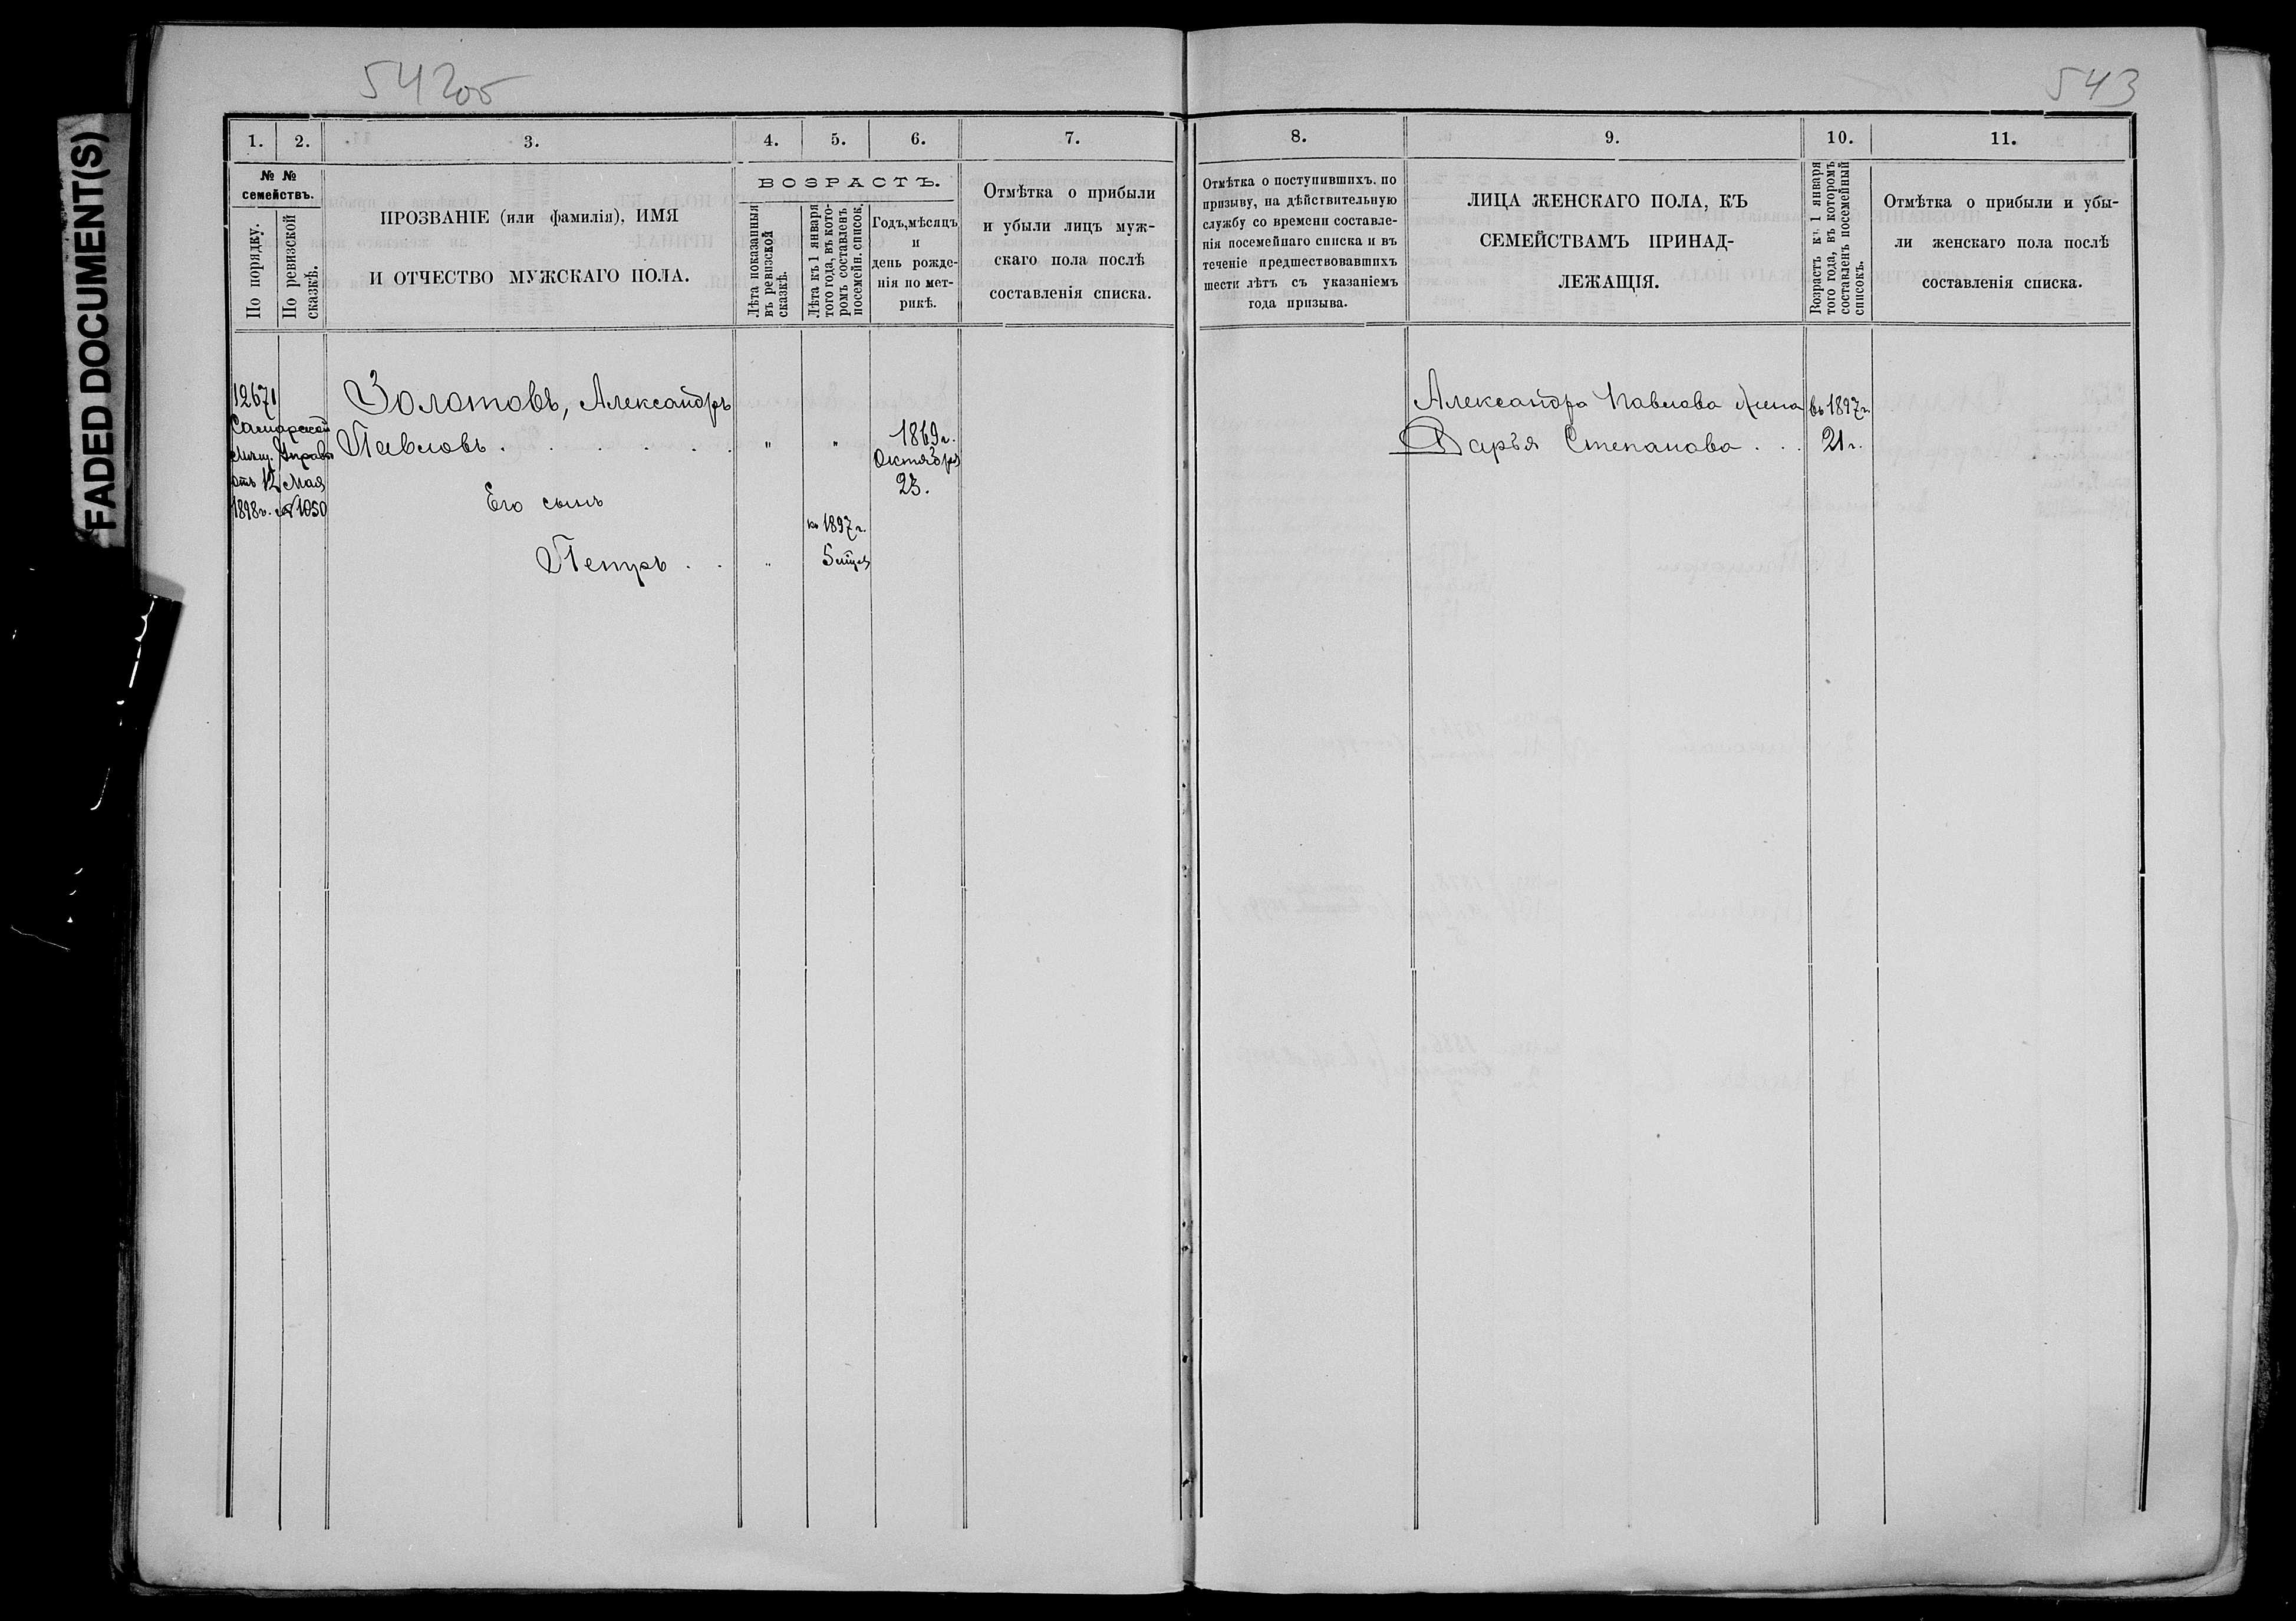 FADED DOCUMENT(S)
542об
1. 2. 3. 4. 5. 6. 7.
№ №
семействъ.
По порядку.
По ревизской
сказкѣ.
ПРОЗВАНІЕ (или фамилія), ИМЯ
И ОТЧЕСТВО МУЖСКАГО ПОЛА.
ВОЗРАСТЪ.
Лѣта показанныя
въ ревизской
сказкѣ.
Лѣта къ 1 января
того года, въ кото-
ромъ составленъ
посемейн. список.
Годъ, мѣсяцъ
и
день рожде-
нія по мет-
рикѣ.
Отмѣтка о прибыли
и убыли лицъ муж-
скаго пола послѣ
составленія списка.
12671
Самарской
Мѣщ. Управы
отъ 12 Мая
1898 г. № 1050
Золотовъ, Александръ
Павловъ . . . . . .
" "
1869 г.
Октября
23.
Его сынъ
Петръ . .
"
къ 1897 г.
5 мѣс.
543
8. 9. 10. 11.
Отмѣтка о поступившихъ, по
призыву, на дѣйствительную
службу со времени составле-
нія посемейнаго списка и въ
теченіе предшествовавшихъ
шести лѣтъ съ указаніемъ
года призыва.
ЛИЦА ЖЕНСКАГО ПОЛА, КЪ
СЕМЕЙСТВАМЪ ПРИНАД-
ЛЕЖАЩІЯ.
Возрастъ къ 1 января
того года, въ которомъ
составленъ посемейный
списокъ.
Отмѣтка о прибыли и убы-
ли женскаго пола послѣ
составленія списка.
Александра Павлова жена
въ 1897 г.
Дарья Степанова . . .
21 г.